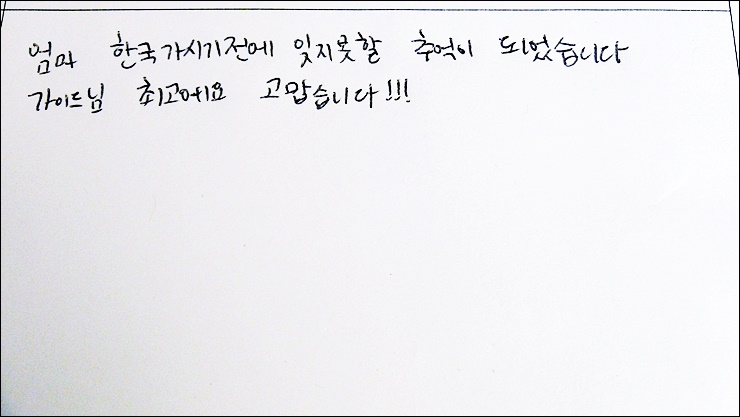 엄마 한국가시기전에 잊지못할 추억이 되었습니다
가이드님 최고에요 고맙습니다!!!